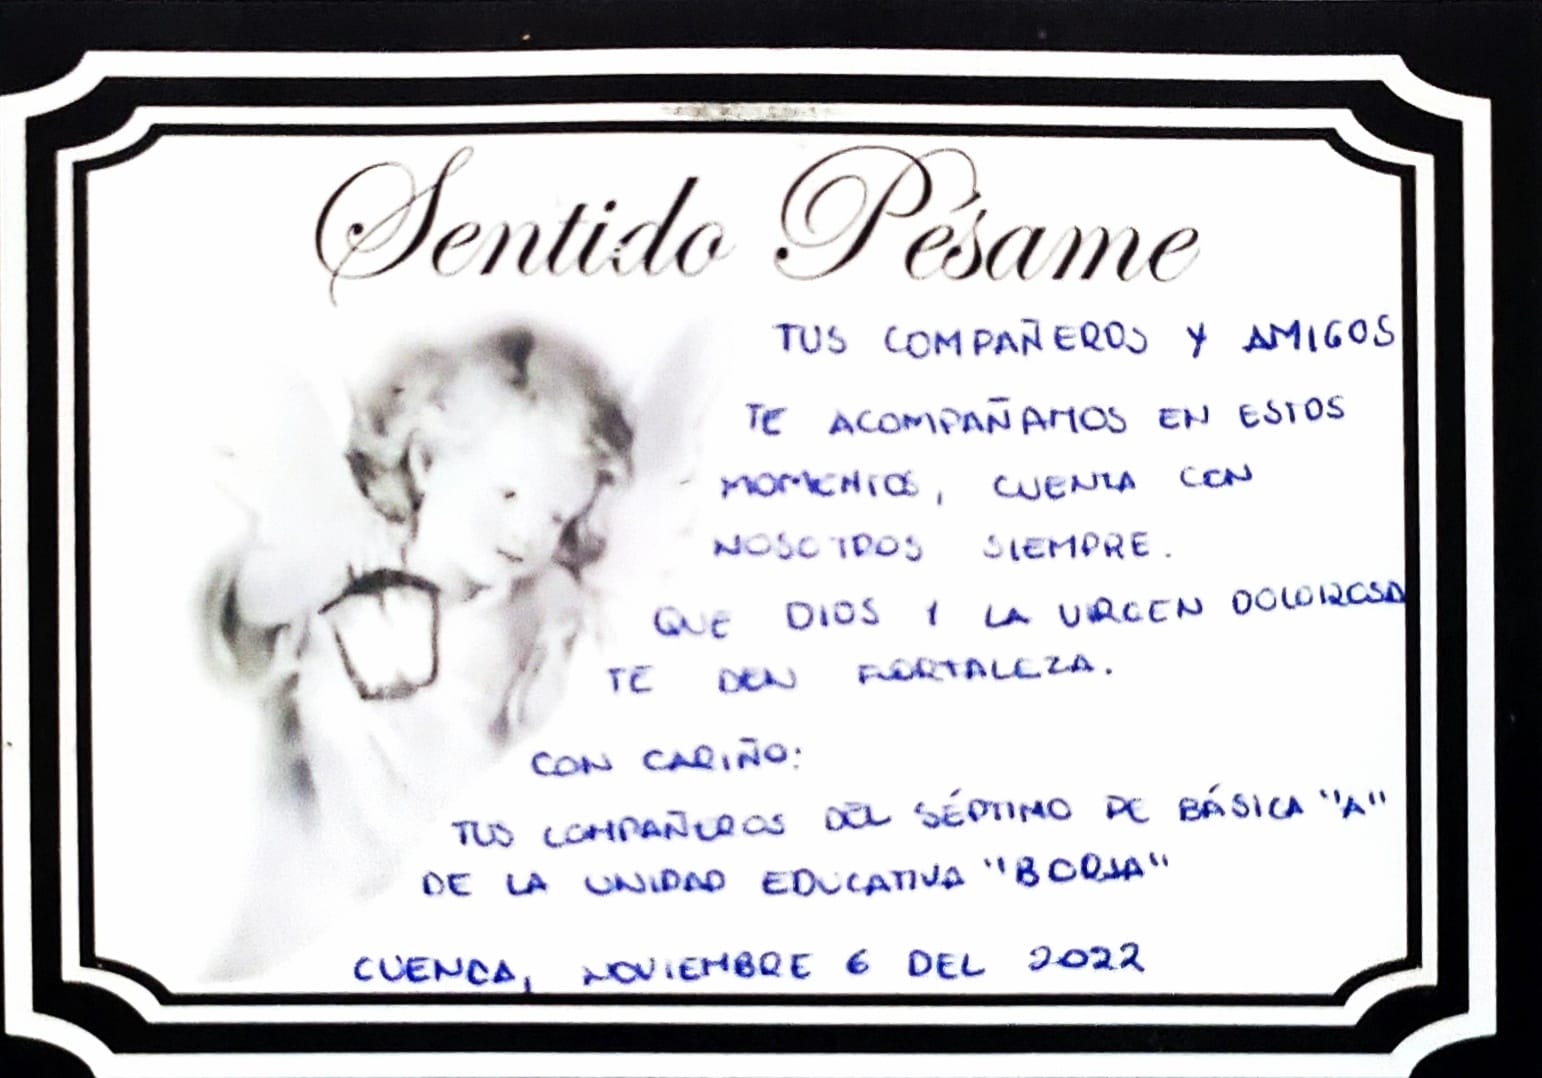 Sentido Pésame
TUS COMPAÑEROS Y AMIGOS
TE ACOMPAÑAMOS EN ESTOS
MOMENTOS, CUENTA CON
NOSOTROS SIEMPRE.
QUE DIOS Y LA VIRGEN DOLOROSA
TE DEN FORTALEZA.
CON CARIÑO:
TUS COMPAÑEROS DEL SÉPTIMO DE BÁSICA "A"
DE LA UNIDAD EDUCATIVA "BORJA"
CUENCA, NOVIEMBRE 6 DEL 2022